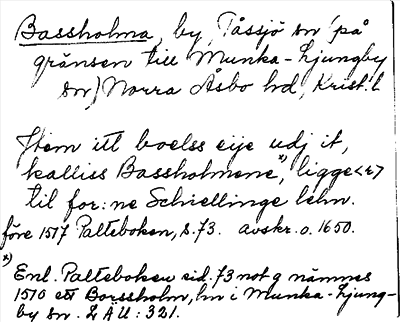 Bassholma, by, Tåssjö sn (på
gränsen till Munka-Ljungby
sn) Norra Åsbo hd, Krist. l.
Item itt boelss eije udj it,
kalliss Bassholmene*), ligge<r>
til for:ne Schiellinge lehn.
före 1517 Palteboken, s. 73. avskr. o. 1650.
*) Enl. Palteboken sid. 73 not 9 nämnes
1510 ett Borssholm, hn i Munka-Ljung-
by sn. LÄU: 321.